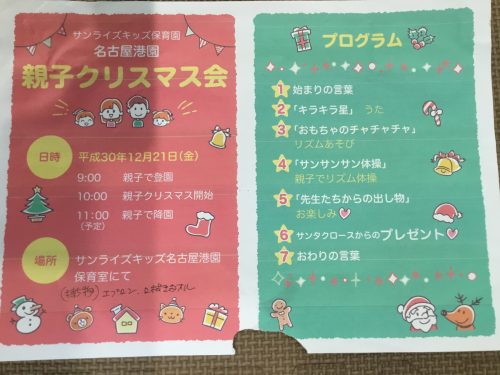 サンライズキッズ保育園
名古屋港園
親子クリスマス会
日時 平成30年12月21日(金)
9:00 親子で登園
10:00 親子クリスマス開始
11:00 親子で降園
(予定)
場所 サンライズキッズ名古屋港園
保育室にて
(持ち物) エプロン、
プログラム
1 始まりの言葉
2 「キラキラ星」 うた
3 「おもちゃのチャチャチャ」
リズムあそび
4 「サンサンサン体操」
親子でリズム体操
5 「先生たちからの出し物」
お楽しみ
6 サンタクロースからのプレゼント
7 おわりの言葉